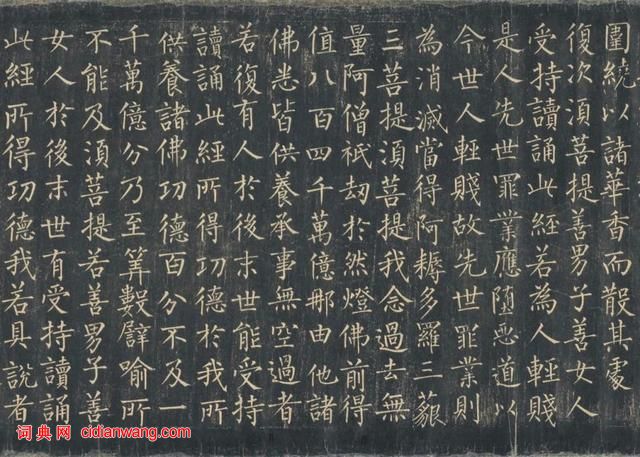 圍繞以諸華香而散其處
復次須菩提善男子善女人
受持讀誦此經若為人輕賤
是人先世罪業應墮惡道以
今世人輕賤故先世罪業則
為消滅當得阿耨多羅三藐
三菩提須菩提我念過去無
量阿僧祇劫於然燈佛前得
值八百四千萬億那由他諸
佛悉皆供養承事無空過者
若復有人於後末世能受持
讀誦此經所得功德於我所
供養諸佛功德百分不及一
千萬億分乃至筭數譬喻所
不能及須菩提若善男子善
女人於後末世有受持讀誦
此經所得功德我若具說者
词典网 cidianwang.com